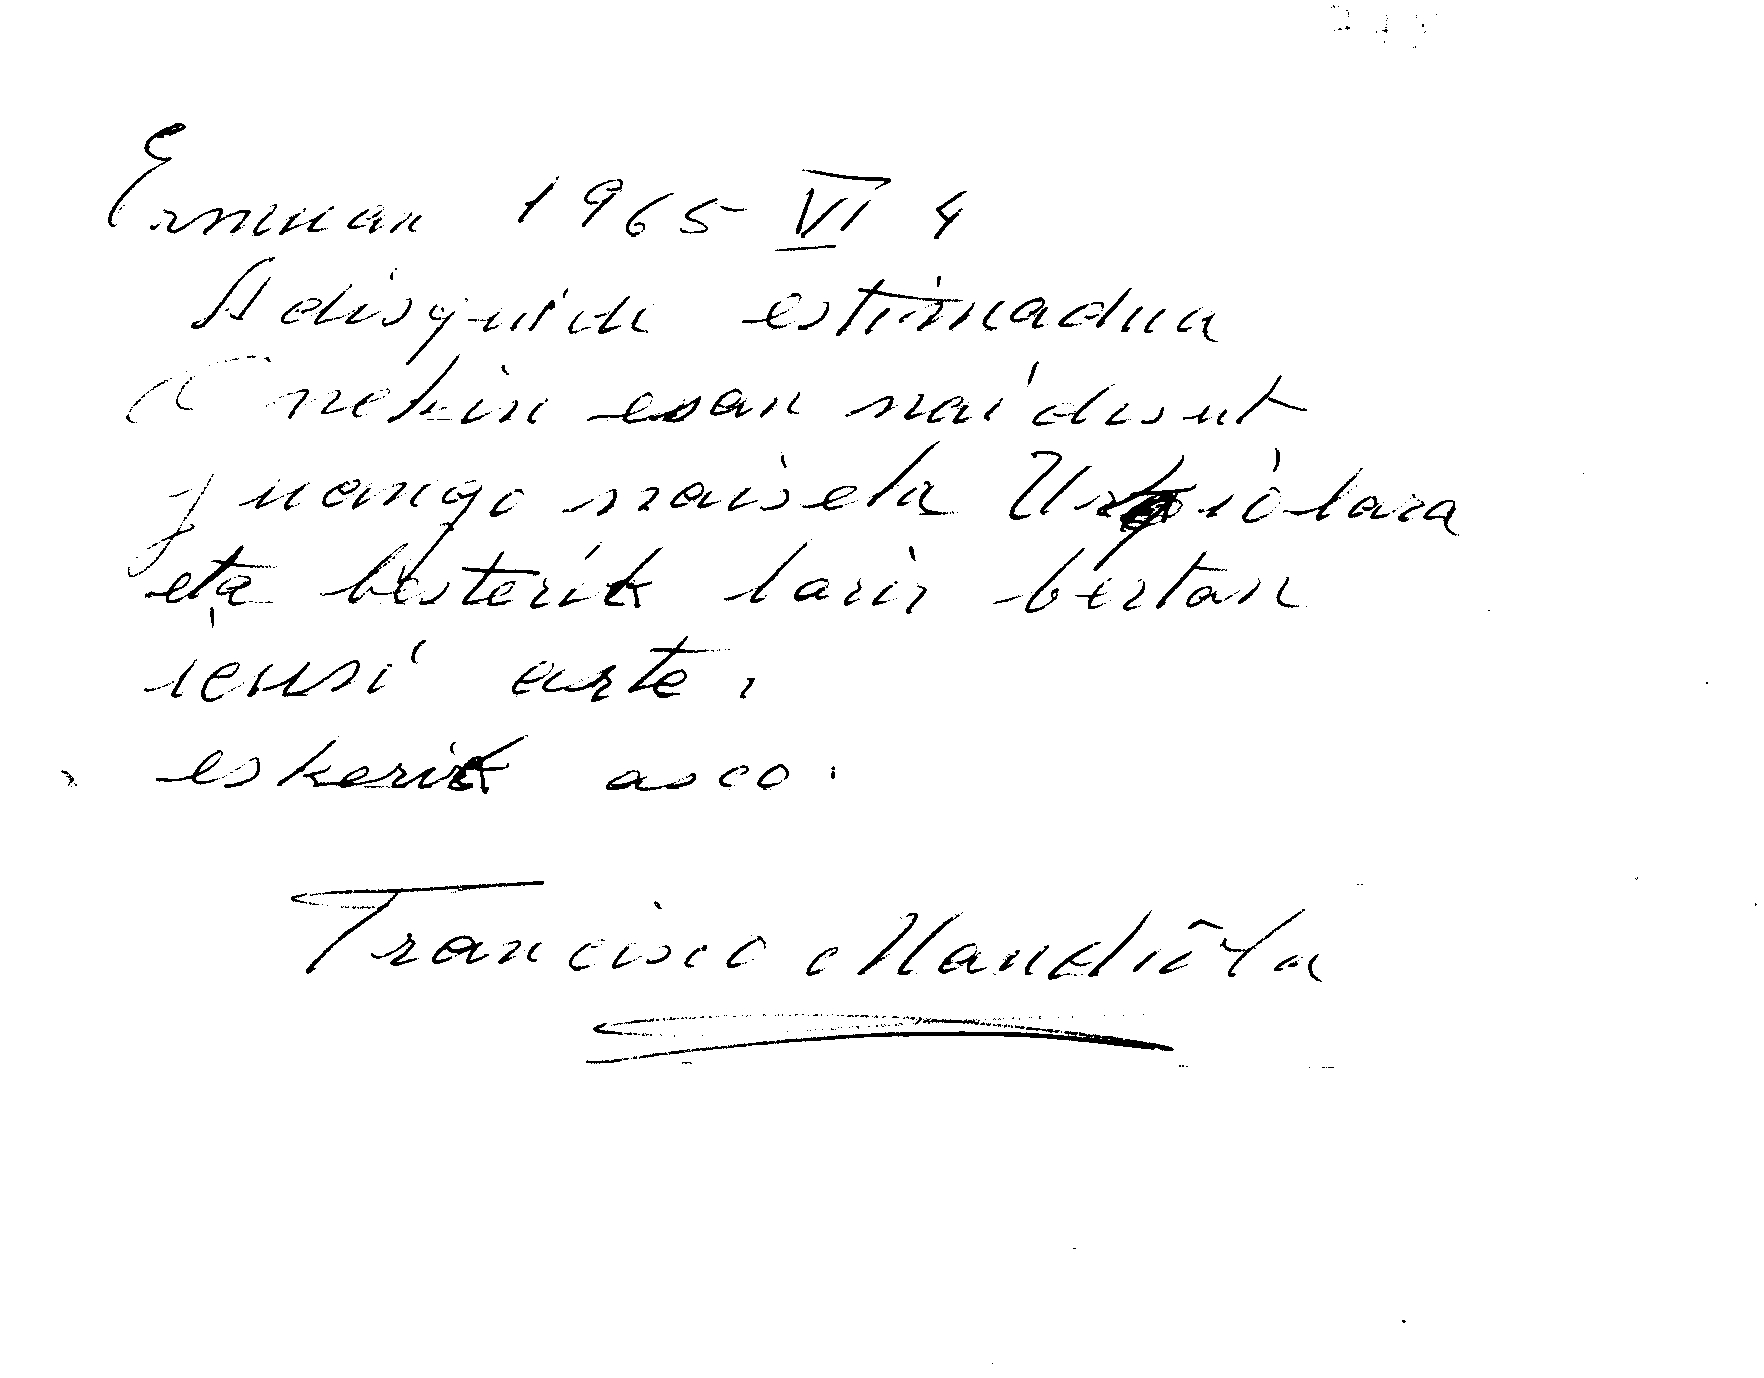 Ermuan 1965 VI 4
Adisquide estimadua
Onekin esan nai disut
juango naisela Urkiolara
eta besterik larir bertan
icusi arte.
eskerik asco.
Francisco Mandiola